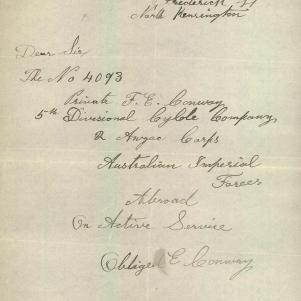 Frederick St
North Kensington
Dear Sir
The No 4093
Private F. E. Conway
5th Divisional Cycle Company
2 Anzac Corps
Australian Imperial
Forces
Abroad
On Active Service
Obliged E Conway